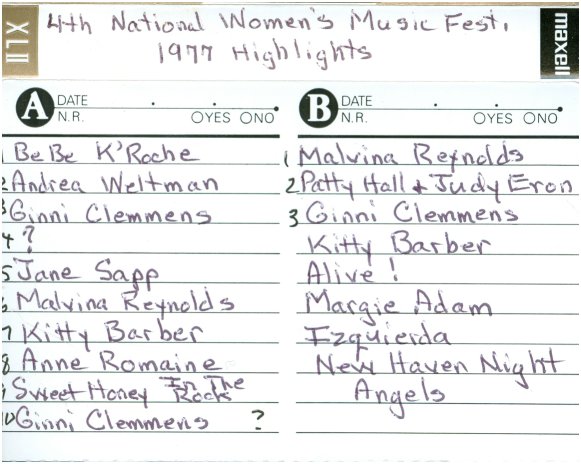 XLII
4th National Women's Music Fest,
1977 Highlights
maxell
A DATE
N.R. OYES ONO
1 BeBe K'Roche
2 Andrea Weltman
3 Ginni Clemmens
4 ?
5 Jane Sapp
6 Malvina Reynolds
7 Kitty Barber
8 Anne Romaine
9 Sweet Honey In The Rock
10 Ginni Clemmens ?
B DATE
N.R. OYES ONO
1 Malvina Reynolds
2 Patty Hall & Judy Eron
3 Ginni Clemmens
Kitty Barber
Alive!
Margie Adam
Izquierda
New Haven Night
Angels